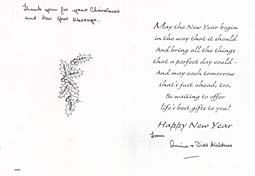 Thank you for your Christmas
and New Year Message.
May the New Year begin
in the way that it should
And bring all the things
that a perfect day could -
And may each tomorrow
that's just ahead, too,
Be waiting to offer
life's best gifts to you!
Happy New Year
from
+ Dick